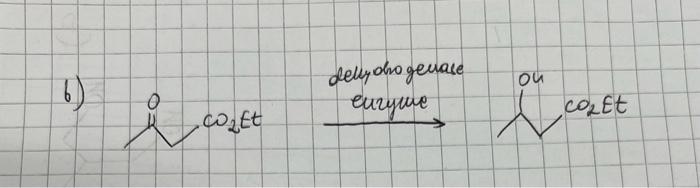 b)
O
CO2Et
dehydrogenase
enzyme
OH
CO2Et